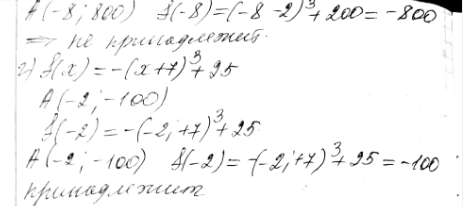 A(-8; 800) f(-8)=(-8-2)³+200=-800
⇒ не принадлежит.
г) f(x)=-(x+7)³+25
A(-2;-100)
f(-2)=-(-2;+7)³+25
A(-2;-100) f(-2)=-(-2;+7)³+25=-100
принадлежит